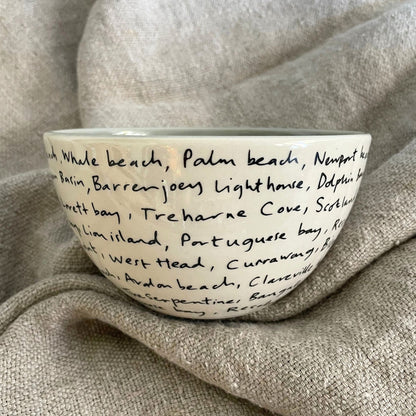 Whale beach, Palm beach, Newport
Basin, Barrenjoey Lighthouse, Dolphin
bay, Treharne Cove, Scotland
Lion island, Portuguese bay,
West Head, Currawong,
Avalon beach, Clareville
Serpentine,
bay,